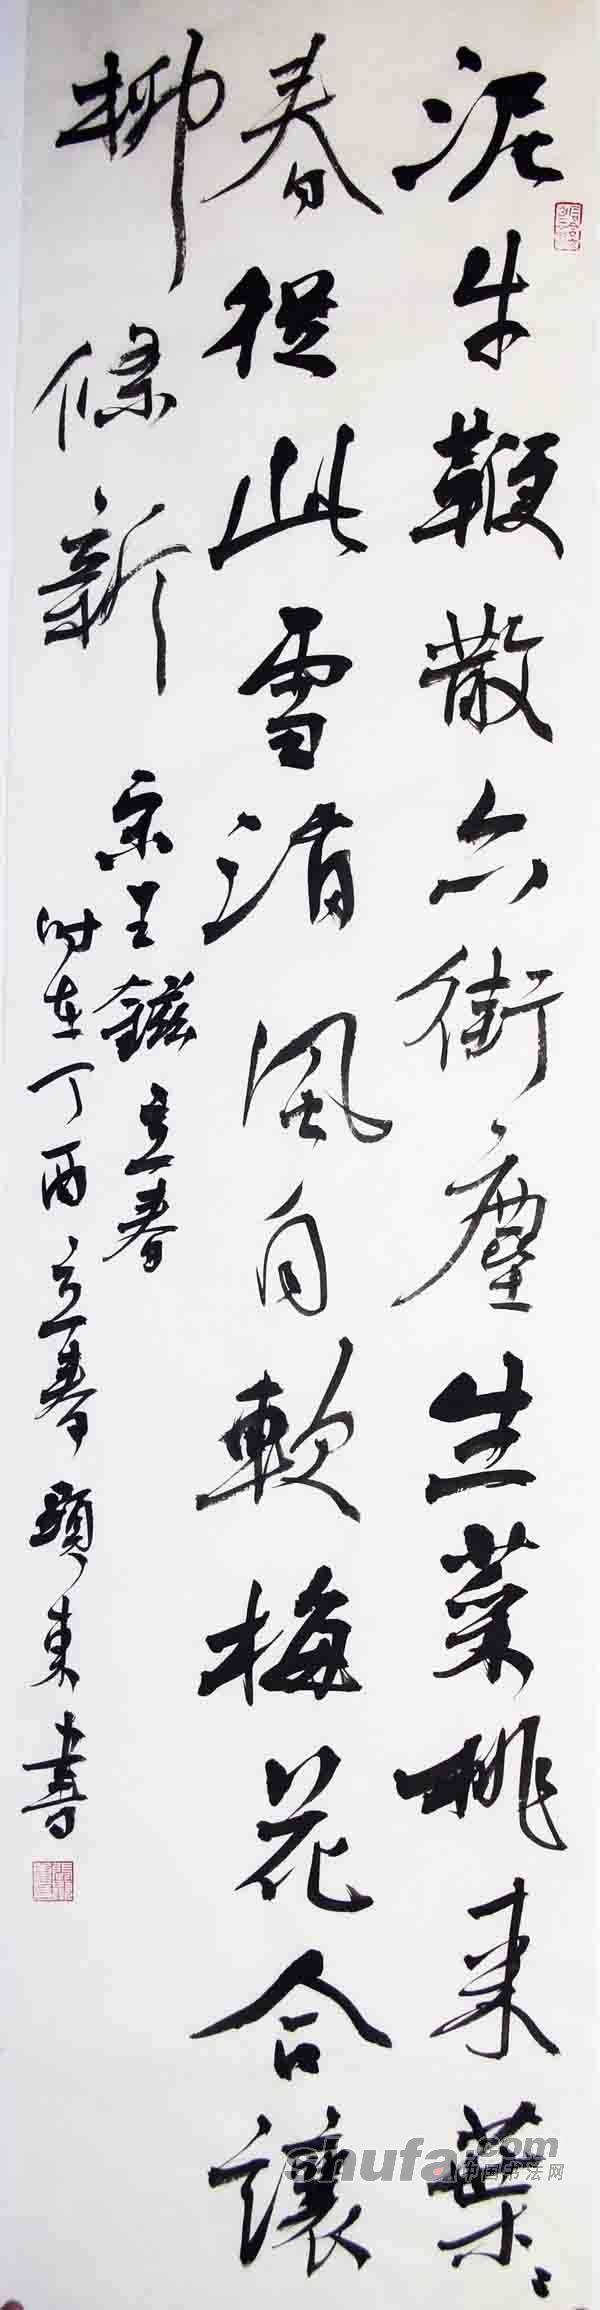 泥牛鞭散六街塵生菜挑来葉〻
春從此雪消風自軟梅花合讓
柳條新
宋王鎡立春
时在丁酉立春顯東書
shufa.com
中国书法网